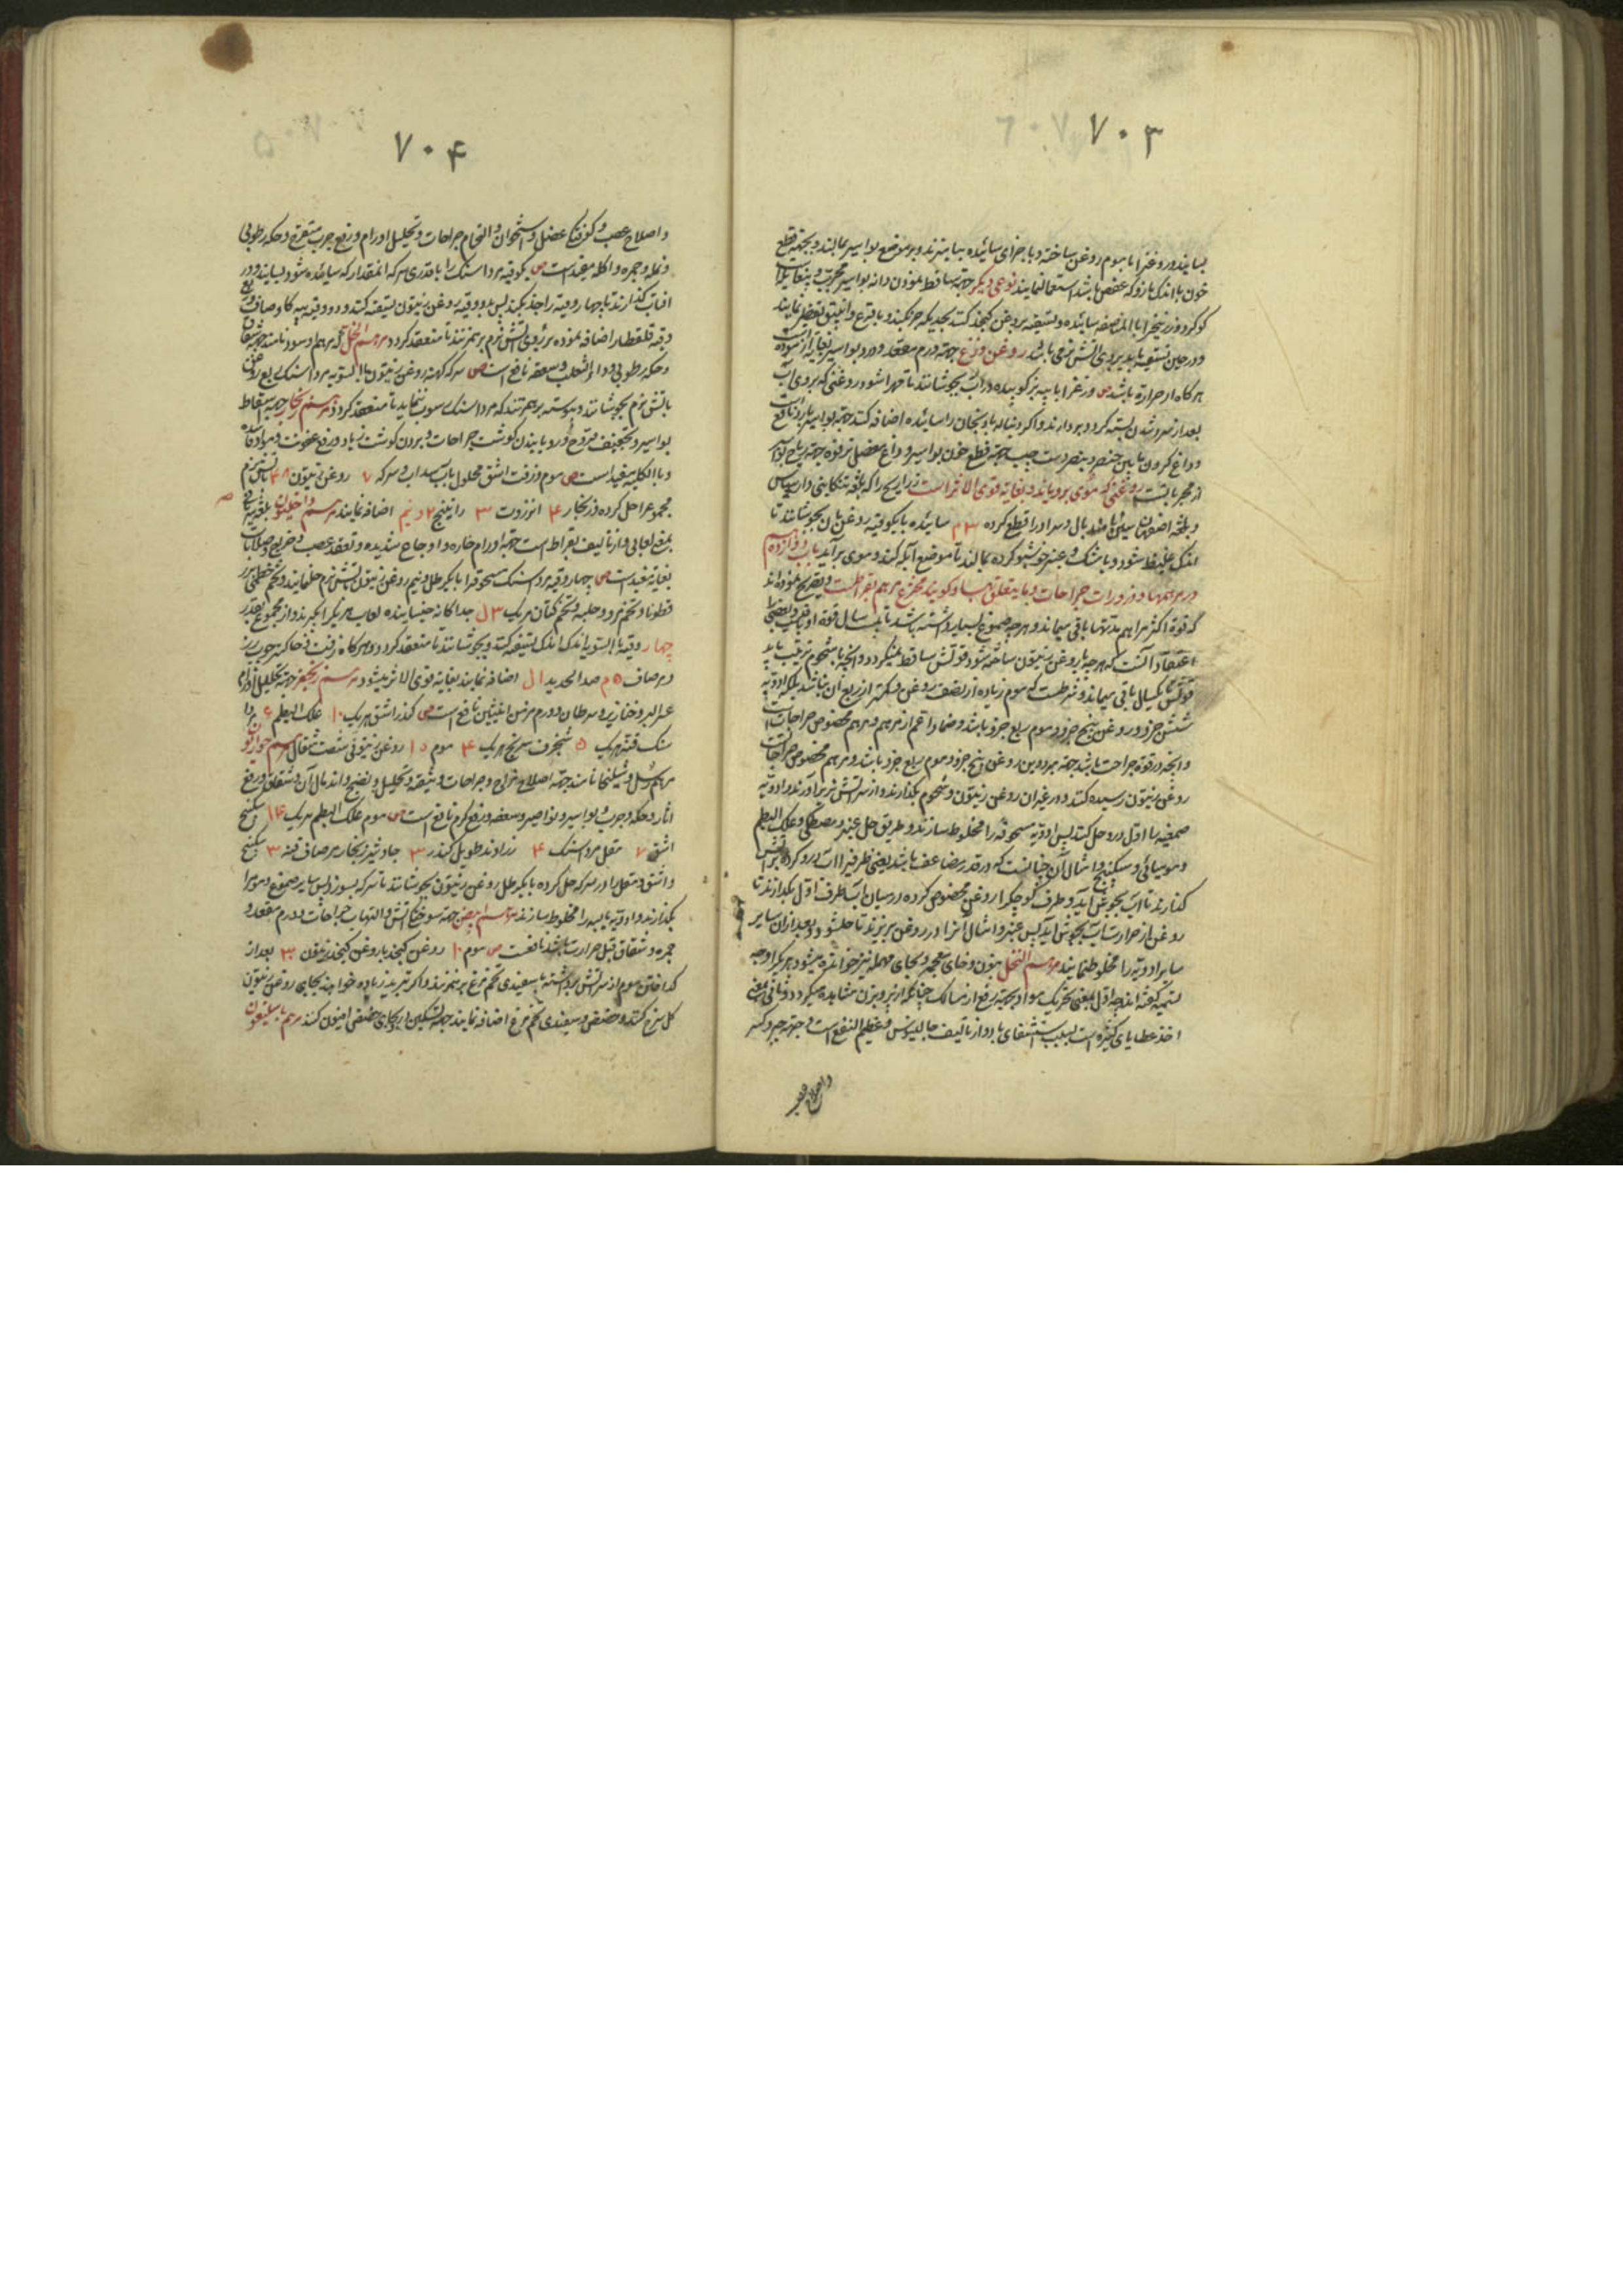 ۷۰۳
بسایند و روغن را با موم روغن ساخته و با جزای سائیده بیامیزند و بر موضع بواسیر بمالند و بجهة قطع
خون با اندک مازو که عفص باشد استعمال نمایند نوعی دیگر جهة ساقط نمودن دانه بواسیر مجرب
کوکرد و زرنیخ را بالمناصفه سائیده و تسقیه بروغن کنجد کنند بحدیکه جذب کند و با قرع و انبیق تقطیر نمایند
و در حین تسقیه باید بر روی آتش نرمی باشد روغن وزغ جهة ورم مقعد و درد بواسیر بغایة آزموده
هرگاه از حرارة باشد ص وزغ را با پیه بز کوبیده در آب بجوشانند تا مهرا شود و روغنی که بر روی آب
بعد از سرد شدن بسته کردد بردارند و اکر دنباله بادنجان را سائیده اضافه کنند جهة بواسیر بارد نافع
و داغ کردن مابین خنصر و بنصر دست چپ جهة قطع خون بواسیر و داغ مفصل ترقوه جهة ریاح بواسیر
از مجربات است روغنی که موی برویاند و بغایة قوی الاثر است ذراریح را که بلغة تنکابنی دارساس
و بلغة اصفهان سین نامند بال و سر او را قطع کرده ۳ م سائیده با یکوقیه روغن بان بجوشانند تا
اندک غلیظ شود و با مشک و عنبر خوشبو کرده بمالند تا موضع آبله کند و موی برآید باب دوازدهم
در مرهمها و ذرورات جراحات و مایتعلق بها و کویند مخترع مرهم بقراطست و تصریح نموده‌اند
که قوة اکثر مراهم مدتها باقی میماند و هرچه صموغ بسیار داشته باشد تا بیست سال قوة او باقیست و بعضی را
اعتقاد آنست که هرچه با روغن زیتون ساخته شود قوتش ساقط نمیکردد و آنچه با شحوم ترتیب یابد
قوتش تا یکسال باقی میماند و شرطست که موم زیاده از نصف روغن و کمتر از ربع آن نباشد بلکه ادویه
شش جزو و روغن پنج جزو و موم ربع جزو باشد و ضماد اعم از مرهم و مرهم مخصوص جراحاتست
و آنچه در قوة جراحت باشد جهة مردوین روغن پنج جزو و موم ربع جزو باشد و مرهم مخصوص جراحات
روغن زیتون رسیده کنند و در غیر آن روغن زیتون و شحوم بکدازند و از سر آتش بزیر آورند و ادویه
صمغیه را اول درو حل کنند پس ادویه مسحوقه را مخلوط سازند و طریق حل عنبر و مصطکی و علک البطم
و مومیائی و سکبینج و امثال آن چنانست که در قدر مضاعف باشد یعنی ظرفی را آب درو کرده بر آتش
کذارند تا آب بجوش آید و ظرف کوچک را روغن مخصوص کرده در میان آب ظرف اول بکدارند تا
روغن از حرارت آب بجوش آید پس عنبر و امثال آنرا در روغن بریزند تا حل شود و بعد از آن سایر
سایر ادویه را مخلوط نمایند مرهم النحل بنون و خای معجمه و بجای مهمله نیز خوانده میشود و هر یک را وجه
تسمیه کفته‌اند چه اول بمعنی تحریک مواد بجهة رفع از مسالک چنانکه از پرویزن مشاهده میکردد و ثانی بمعنی
اخذ عطایای کثیره است بسبب استشفای با او و از تالیف جالینوس و عظیم النفع است و جهة جبر و کسر
و اصلاح عصب
۷۰۴
و اصلاح عصب و کوفتکی عضل و استخوان و التحام جراحات و تحلیل اورام و رفع جرب متقرح و حکه رطوبی
و نمله و جمره و اکله مفید است ص یکوقیه مرداسنک را با قدری سرکه انمقدار که سائیده شود بسایند و در
افتاب کذارند تا چهار وقیه را جذب کند پس بدو وقیه روغن زیتون تسقیه کنند و دو وقیه پیه کاو صاف و ربع
وقیه قلقطار اضافه نموده بر روی آتش نرم برهم زنند تا منعقد کردد مرهم الخل که مرهم اسود نامند جهة شقاق
و حکه رطوبی و داء الثعلب و سعفه نافع است ص سرکه کهنه روغن زیتون بالسویه مرداسنک ربع روغن
باتش نرم بجوشانند و پیوسته برهم زنند که مرداسنک رسوب ننماید تا منعقد کردد مرهم زنجار جهة اسقاط
بواسیر و تجفیف قروح و رویانیدن کوشت جراحات و بردن کوشت زیاد و رفع عفونت و مواد فاسده
و بالکلیه مفید است ص موم و زفت اشق محلول باب سداب و سرکه ۷ روغن زیتون ۴۸ باتش نرم
مجموع را حل کرده و زنجار ۴ انزروت ۳ راتینج ۲ و نیم اضافه نمایند مرهم داخلیون بلغة یونانی
بمعنی لعابی و از تالیف بقراط است جهة اورام حاره و اوجاع شدیده و تعقد عصب و خنازیر و صلابات
بغایة مفید است ص چهار وقیه مرداسنک مسحوق را با یکرطل و نیم روغن زیتون باتش نرم حل نمایند و تخم خطمی بزر
قطونا و تخم مرو و حلبه و تخم کتان هریک ۳ ل جداکانه خیسانیده لعاب هریک را بکیرند و از مجموع بقدر
چهار وقیه بالسویه اندک اندک تسقیه کنند و بجوشانند تا منعقد کردد و هرکاه زفت و خاکستر چوب رز
و مر صاف ۵ م صداء الحدید ۱ ل اضافه نمایند بغایة قوی الاثر میشود مرهم زنجفر جهة تحلیل اورام
عسر البرو و خنازیر و سرطان و ورم مزمن انثیین نافع است ص کندر اشق هریک ۱۰ علک البطم ۶ مردا
سنک قنه هریک ۵ شنجرف سرنج هریک ۴ موم ۱۵ روغن زیتون شصت مثقال مرهم حواریون
مرهم رسل و شلیخا نامند جهة اصلاح خراج و جراحات و تنقیه و تحلیل و نضج و اندمال آن و شقاق و رفع
اثار و حکه و جرب و بواسیر و نواصیر و سعفه و رفع کرم نافع است ص موم علک البطم هریک ۱۴ سکبینج
اشق ۷ مقل مرداسنک ۴ زراوند طویل کندر ۳ جاوشیر زنجار مر صاف قنه ۳ سکبینج
و اشق و مقل را در سرکه حل کرده با یکرطل روغن زیتون بجوشانند تا سرکه بسوزد پس سایر صموغ و موم را
بکدازند و ادویه یابسه را مخلوط سازند مرهم ابیض جهة سوختکی آتش و التهاب جراحات و ورم مقعد و
جمره و شقاق قبل حرارت باشد نافعست ص موم ۱۰ روغن کنجد یا روغن کنجد زیتون ۳۰ بعد از
کداختن موم از سر آتش برداشته با سفیدی تخم مرغ برهم زنند و اکر تبرید زیاده خواهند بجای روغن زیتون
کل سرخ کنند و حضض و سفیدی تخم مرغ اضافه نمایند جهة تسکین درد بجای حضض افیون کنند مرهم باسلیقون